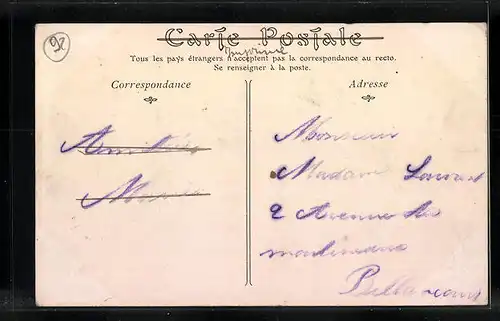 92
Carte Postale
Imprimé
Tous les pays étrangers n'acceptent pas la correspondance au recto.
Se renseigner à la poste.
Correspondance
Adresse
Amitiés
Monsieur
Madame Laurent
2 Avenue des
moulineaux
Billancourt